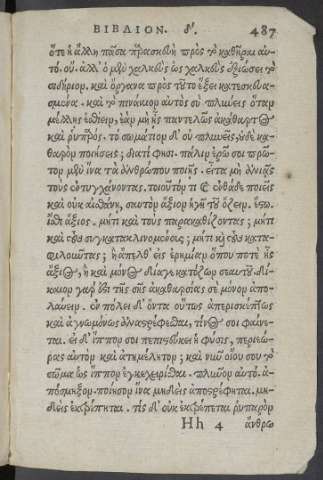 ΒΙΒΛΙΟΝ. δ'. 487
ὅτε ἡ ἄλλη πᾶσα παρασκευὴ πρὸς τὸ καθῆραι αὐ
τό. οὔ. ἀλλ' ὁ μὲν χαλκεὺς ὡς χαλκεὺς ἀξιώσει τὸ
σιδήριον. καὶ ὄργανα πρὸς τοῦτο ἕξει κατεσκευα-
σμένα. καὶ τὸ πινάκιον αὐτὸς σὺ πλυνεῖς ὅταν
μέλλῃς ἐσθίειν, ἐὰν μὴ ᾖς παντελῶς ἀκάθαρτος
καὶ ῥυπαρός. τὸ σωμάτιον δ' οὐ πλυνεῖς, οὐδὲ κα-
θαρὸν ποιήσεις; διατί φησι. πάλιν ἐρῶ σοι πρῶ-
τον μὲν ἵνα τὰ ἀνθρώπου ποιῇς. εἶτα μὴ ἀνιᾷς
τοὺς ἐντυγχάνοντας. τοιοῦτόν τι καὶ ἐνθάδε ποιεῖς
καὶ οὐκ αἰσθάνῃ, σαυτὸν ἄξιον ἡγῇ τοῦ ὄζειν. ἔστω.
ἴσθι ἄξιος. μήτι καὶ τοὺς παρακαθίζοντας; μήτι
καὶ τοὺς συγκατακλινομένους; μήτι καὶ τοὺς κατα-
φιλοῦντας; ἢ ἄπελθ' εἰς ἐρημίαν ὅπου ποτὲ ἧς
ἄξιος, ἢ καὶ μόνος δίαγε κατόζων σεαυτοῦ δί-
καιον γάρ ἐστι τῆς σῆς ἀκαθαρσίας σὲ μόνον ἀπο-
λαύειν. ἐν πόλει δὲ ὄντα οὕτως ἀπερισκέπτως
καὶ ἀγνωμόνως ἀναστρέφεσθαι, τίνος σοι φαίνε-
ται. εἰ δ' ἵππον σοι πεπιστεύκει ἡ φύσις, περιεώ-
ρας αὐτὸν καὶ ἀτημέλητον; καὶ νῦν οἴου σου τὸ
σῶμα ὡς ἵππον ἐγκεχειρίσθαι. πλῦνον αὐτό. ἀ-
πόσμηξον. ποίησον ἵνα μηδεὶς ἀποστρέφηται. μη-
δεὶς ἐκτρέπηται. τίς δ' οὐκ ἐκτρέπεται ῥυπαρὸν
Hh 4 ἄνθρω